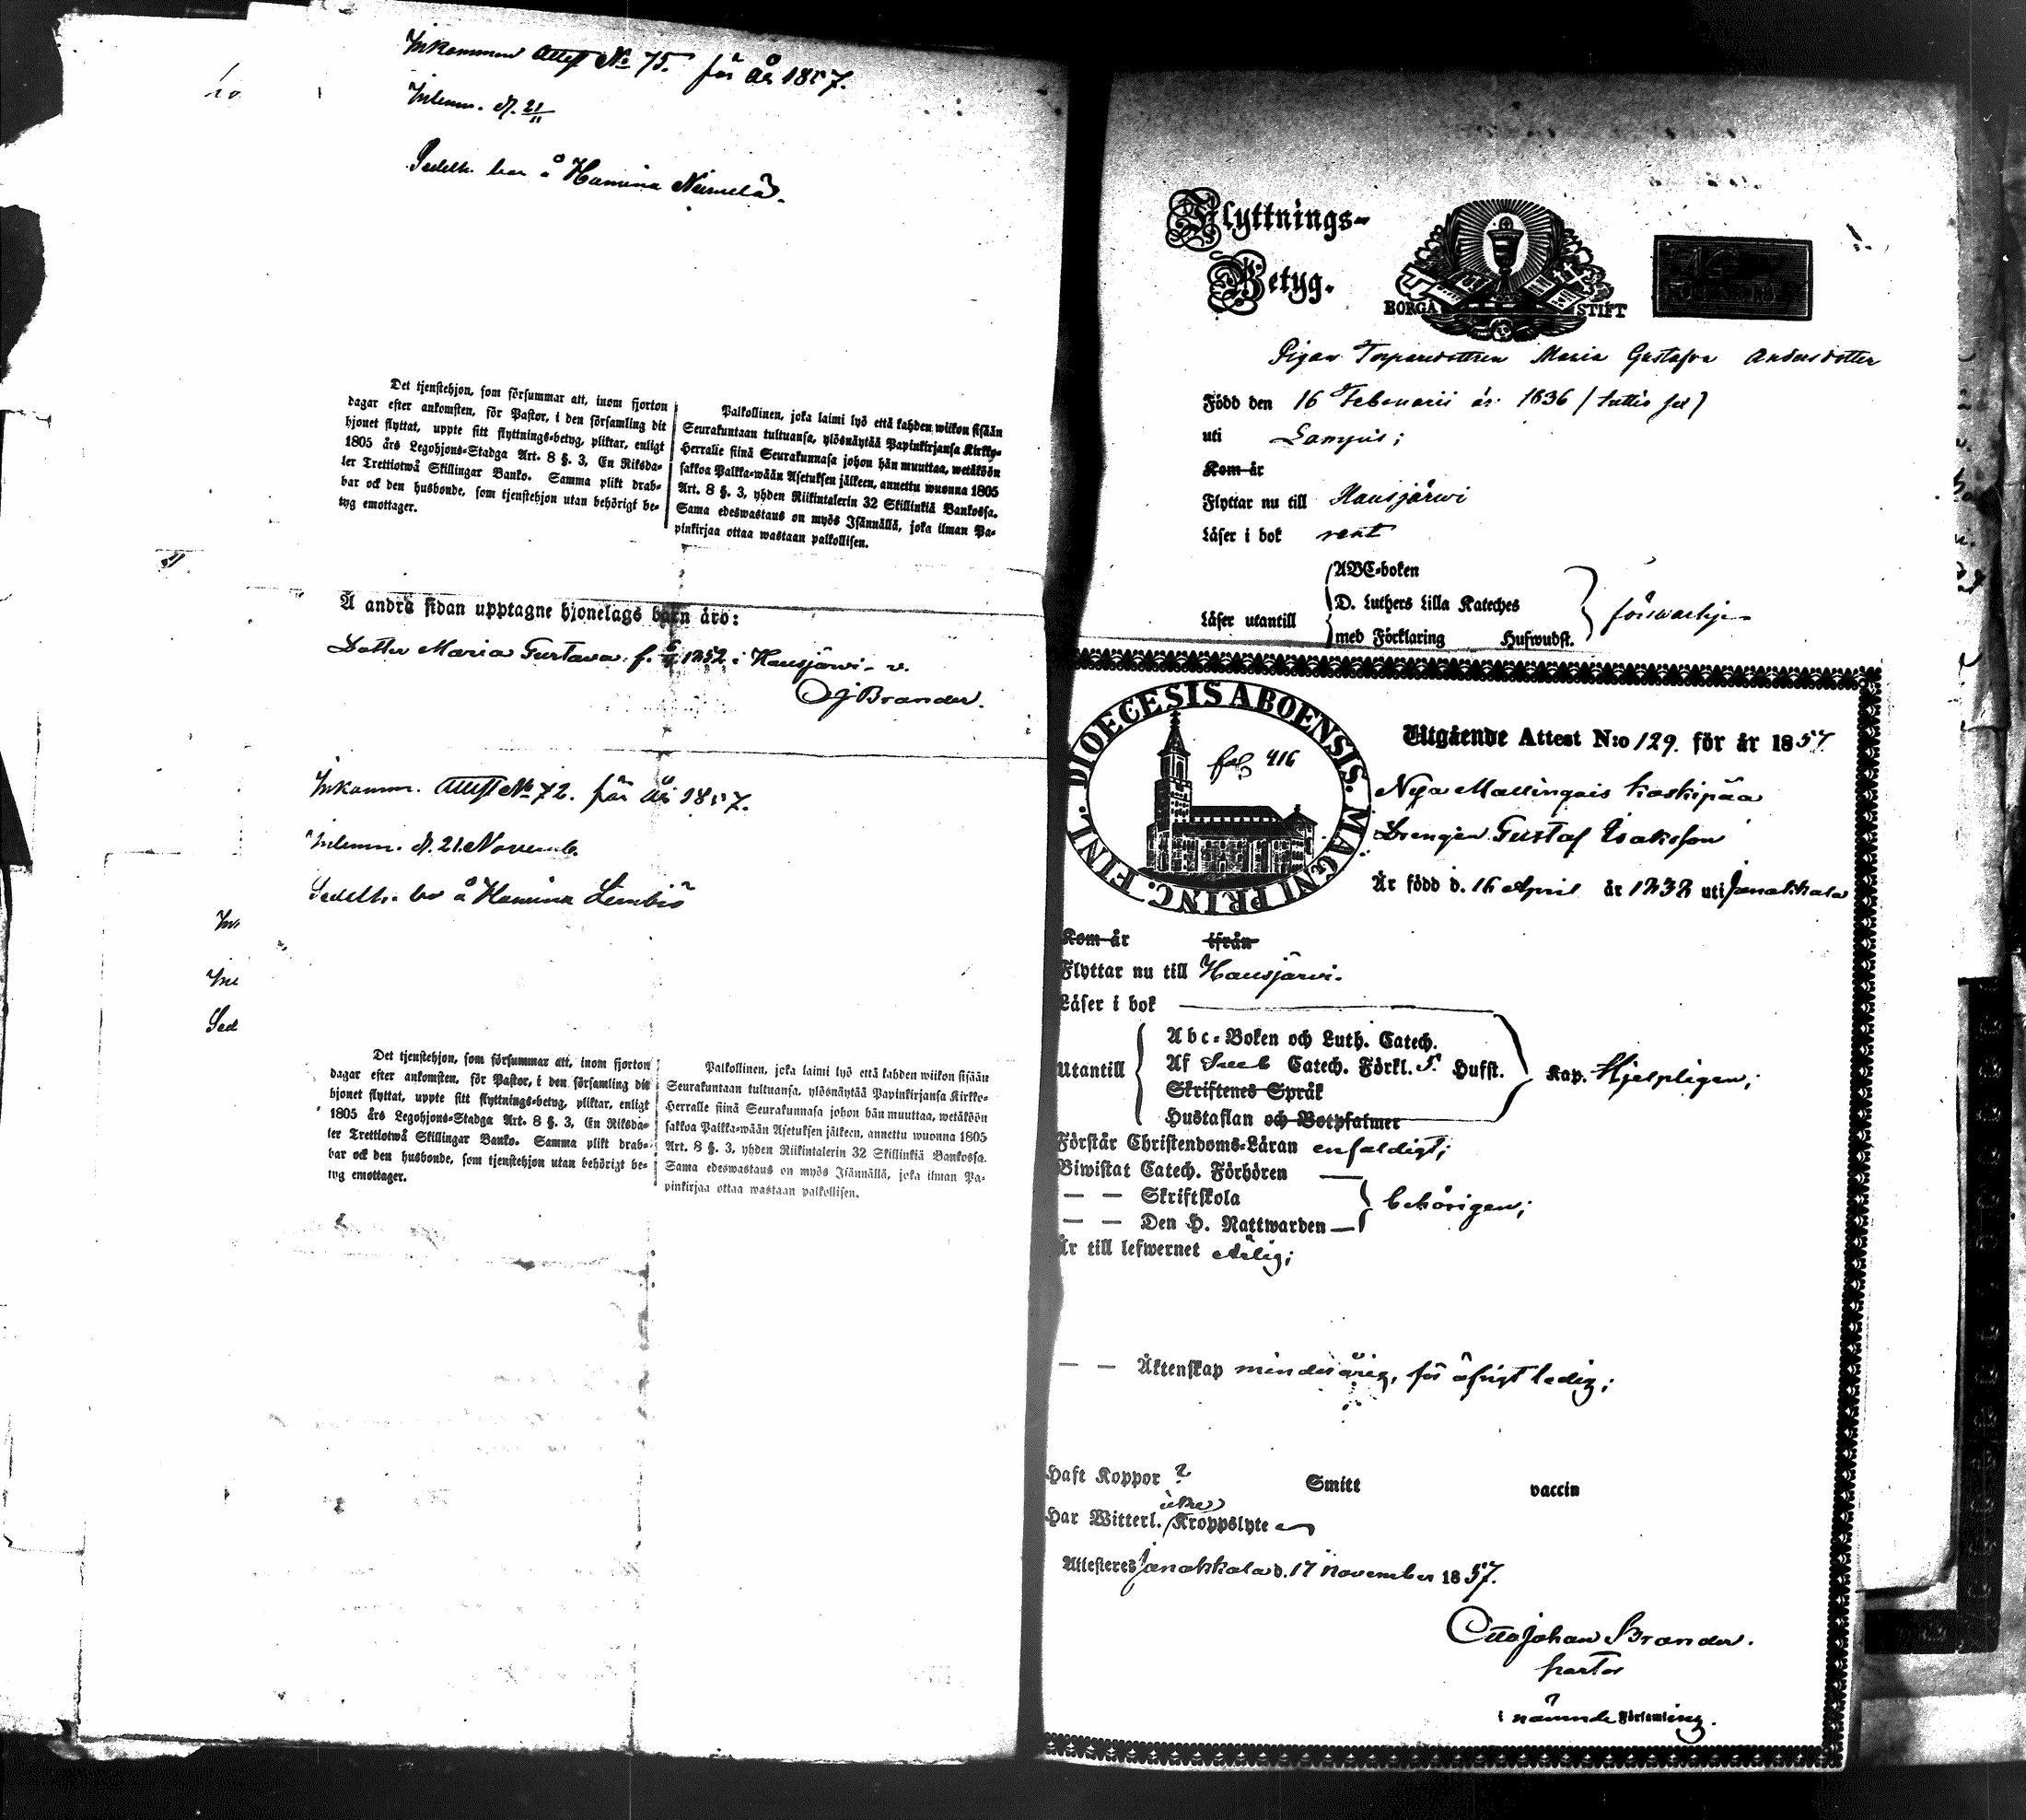 Inkommen Attest No 75. för år 1857.
Inlemn. d. 21/11
Sedelh. bor å Hamina Niemelä.
Det tjenstehjon, som försummar att, inom fjorton
dagar efter ankomsten, för Pastor, i den församling dit
hjonet flyttat, uppte sitt flyttnings-betyg, pliktar, enligt
1805 års Legohjons-Stadga Art. 8 §. 3, En Riksda-
ler Trettiotwå Skillingar Banko. Samma plikt drab-
bar ock den husbonde, som tjenstehjon utan behörigt be-
tyg emottager.
Palkollinen, joka laimi lyö että kahden wiikon sisään
Seurakuntaan tultuansa, ylösnäytää Papinkirjansa Kirkko-
Herralle siinä Seurakunnasa johon hän muuttaa, wetäköön
sakkoa Palkka-wään Asetuksen jälkeen, annettu wuonna 1805
Art. 8 §. 3, yhden Riikintalerin 32 Skillinkiä Bankossa.
Sama edeswastaus on myös Isännällä, joka ilman Pa-
pinkirjaa ottaa wastaan palkollisen.
Å andra sidan upptagne hjonelags barn äro:
Dotter Maria Gustava f. 1852 i Hausjärvi
OJ Brander.
Inkomm. Attest No 72. för år 1857.
Inlemn. d. 21. Novemb.
Sedelh. bor å Hamina
In
In
Sed
Det tjenstehjon, som försummar att, inom fjorton
dagar efter ankomsten, för Pastor, i den församling dit
hjonet flyttat, uppte sitt flyttnings-betyg, pliktar, enligt
1805 års Legohjons-Stadga Art. 8 §. 3, En Riksda-
ler Trettiotwå Skillingar Banko. Samma plikt drab-
bar ock den husbonde, som tjenstehjon utan behörigt be-
tyg emottager.
Palkollinen, joka laimi lyö että kahden wiikon sisään
Seurakuntaan tultuansa, ylösnäytää Papinkirjansa Kirkko-
Herralle siinä Seurakunnasa johon hän muuttaa, wetäköön
sakkoa Palkka-wään Asetuksen jälkeen, annettu wuonna 1805
Art. 8 §. 3, yhden Riikintalerin 32 Skillinkiä Bankossa.
Sama edeswastaus on myös Isännällä, joka ilman Pa-
pinkirjaa ottaa wastaan palkollisen.
Flyttnings-
Betyg.
BORGÅ STIFT
Pigan Torparedottren Maria Gustafva Andersdotter
Född den 16 Februarii år 1836
uti Lampis;
Kom år
Flyttar nu till Hausjärwi
Läser i bok rent
Läser utantill
ABC-boken
D. Luthers Lilla Kateches
med Förklaring Hufwudst.
försvarlig
DIOECESIS ABOENSIS. MAGNI PRINC. FINL.
fol 416
Utgående Attest N:o 129. för år 1857
Nya Mallingais Koskipää
Drengen Gustaf Isaksson
Är född d. 16 April år 1838 uti Janakkala
Kom år ifrån
Flyttar nu till Hausjärvi.
Läser i bok
Utantill
Abc-Boken och Luth. Catech.
Af Sveb Catech. Förkl. 5 Hufst.
Skriftenes Språk
Hustaflan och Botpsalmer
Kap. Hjelpligen;
Förstår Christendoms-Läran enfaldigt;
Biwistat Catech. Förhören
— — Skriftskola
— — Den H. Nattwarden
behörigen;
Är till lefwernet ärlig;
— — Äktenskap minderårig, för öfrigt ledig;
Haft Koppor ? Smitt vaccin
Har Witterl. icke Kroppslyte
Attesteres Janakkala d. 17 November 1857.
Otto Johan Brander.
pastor
i nämnde Församling.